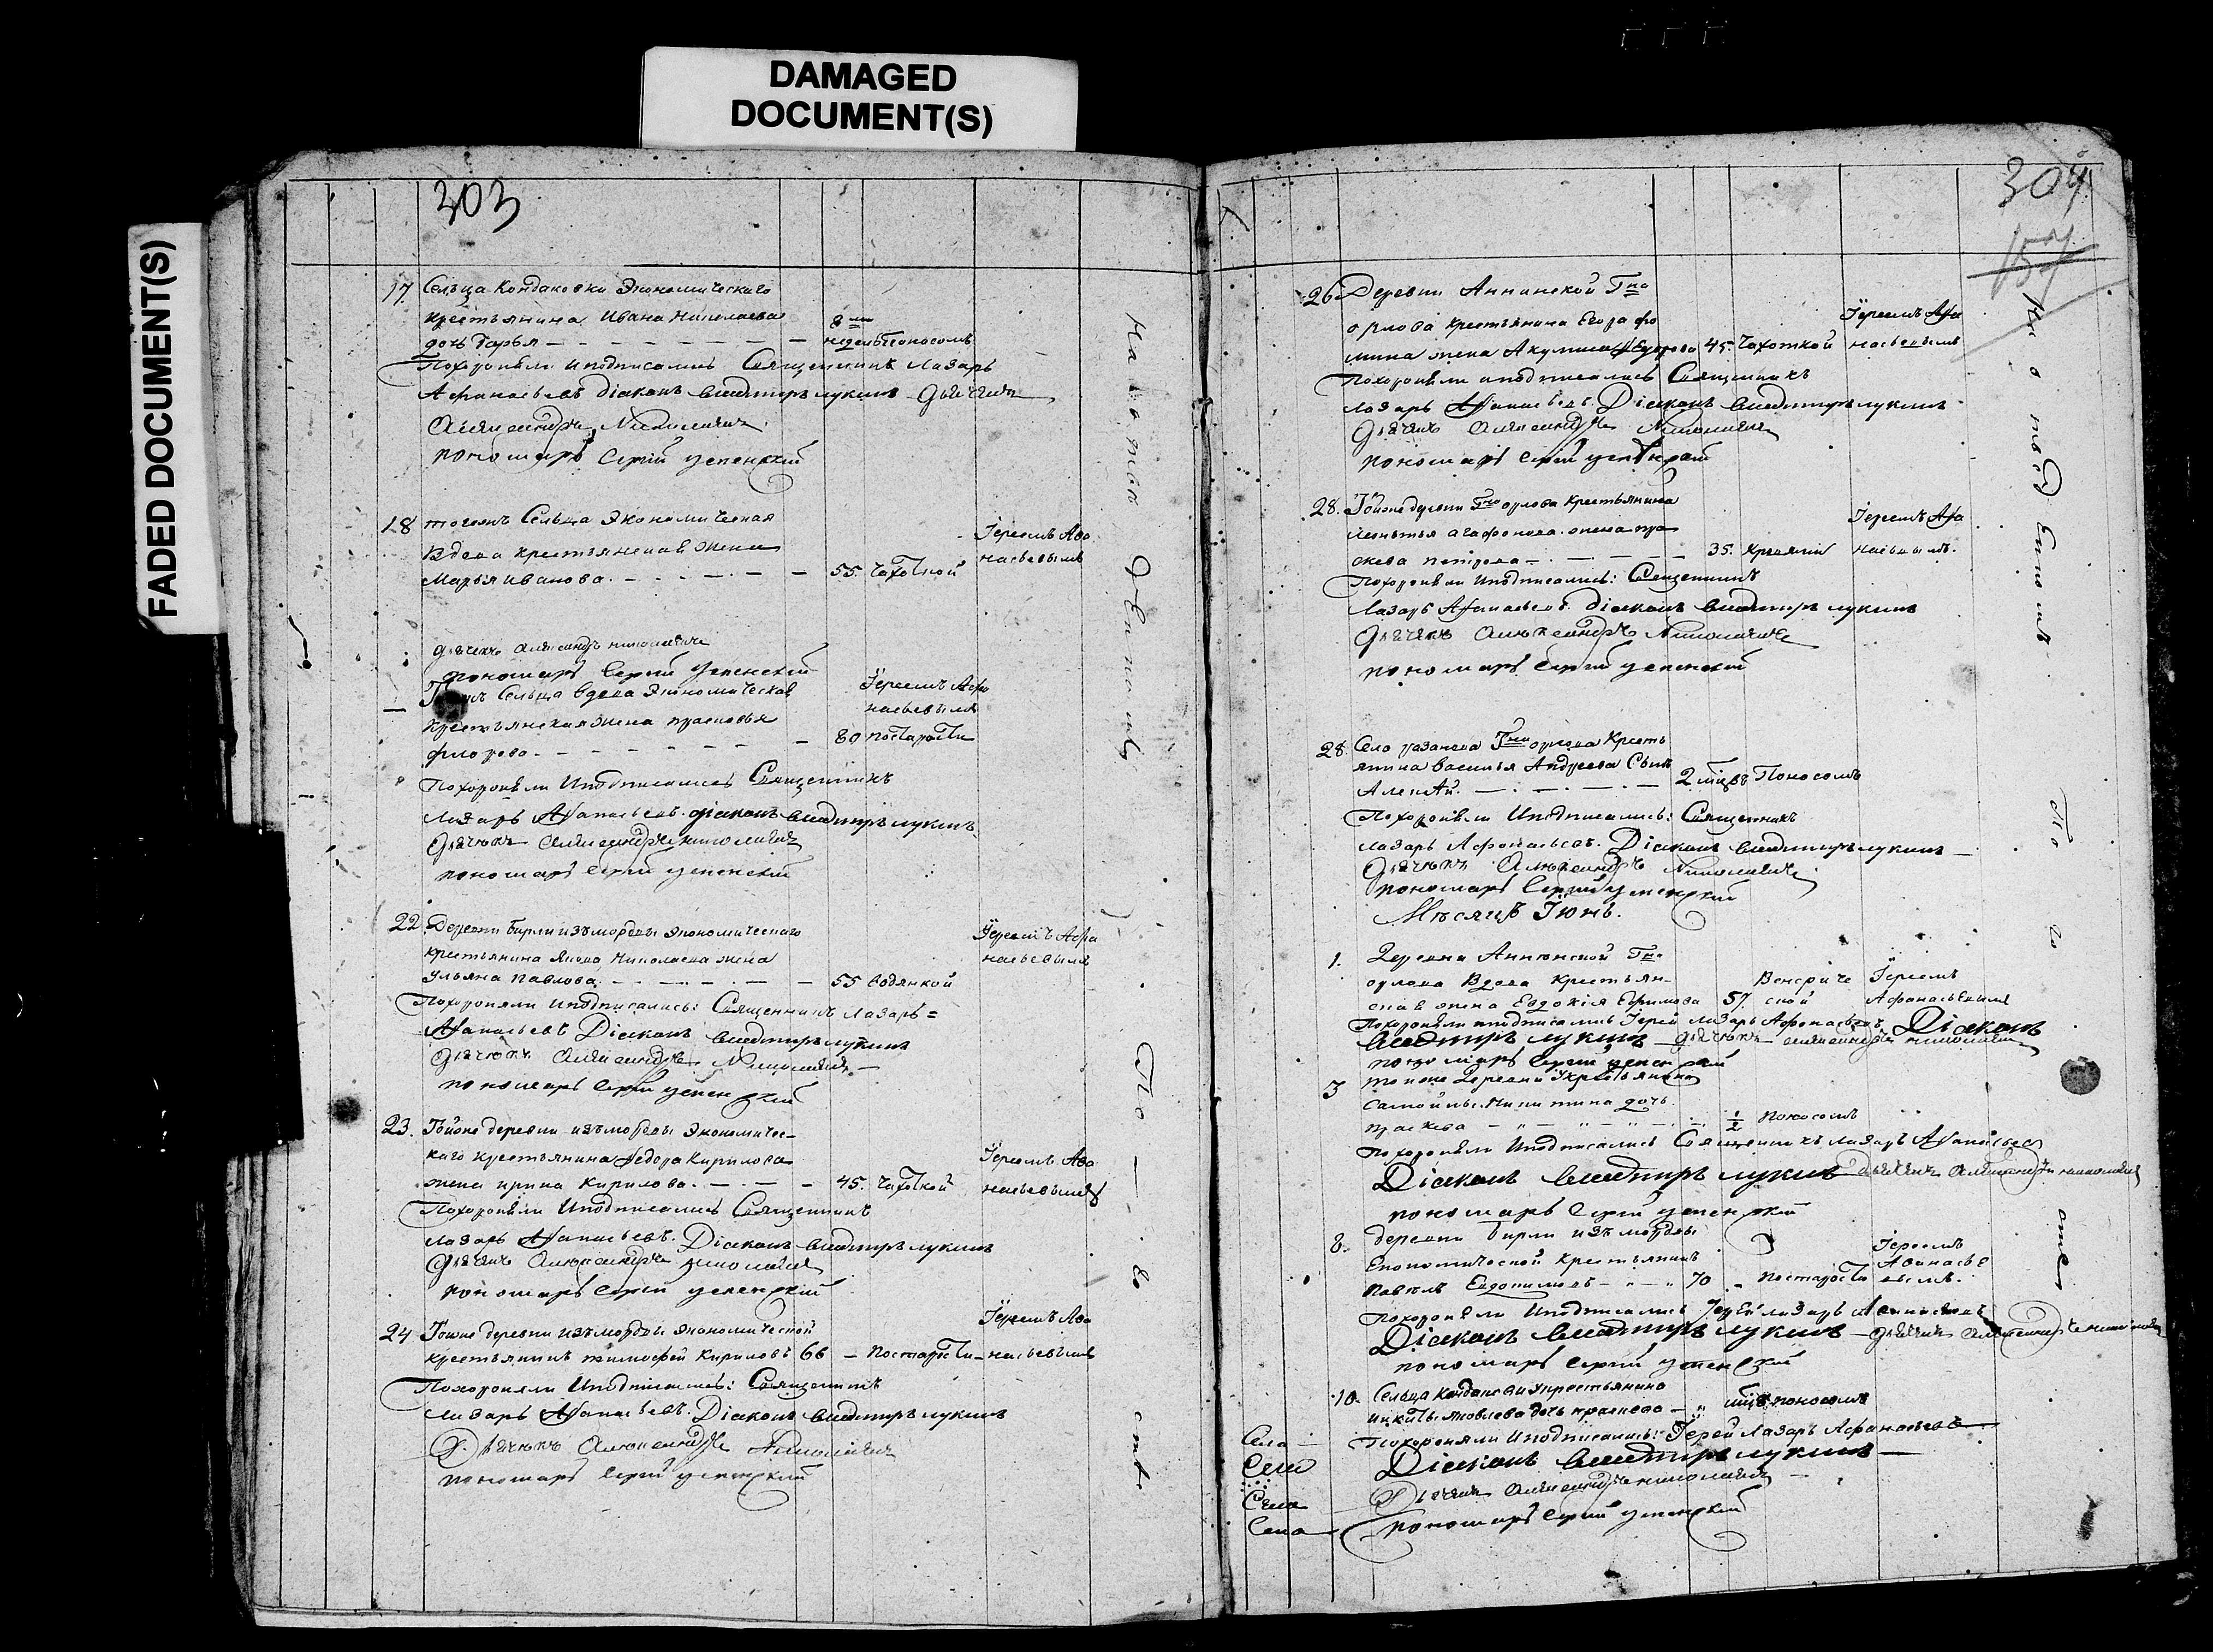 DAMAGED
DOCUMENT(S)
FADED DOCUMENT(S)
303
17. Сельца Кондаковки Экономическаго
крестьянина Ивана Николаева 8
дочь Дарья — недель поносомъ
Похоронили и подписались Священникъ Лазарь
Афанасьевъ Діаконъ Владимиръ Лукинъ Дьячекъ
Александръ Николаевъ
пономарь Сергій Успенскій
18 тогожъ Сельца Экономическая
Вдова крестьянская жена Іереемъ Афа
Марья Иванова. — 55. Чахоткой насьевымъ
дьячекъ Александръ Николаевъ
пономарь Сергій Успенскій
— Сельца вдова Экономическая Іереемъ Афа
крестьянская жена Прасковья насьевымъ
Флорова — 80 по старости
Похоронили и подписались Священникъ
Лазарь Афанасьевъ. Діаконъ Владимиръ Лукинъ
Дьячокъ Александръ Николаевъ
пономарь Сергій Успенскій
22 Деревни Бирли изъ мордвы экономическаго Іереемъ Афа
крестьянина Якова Николаева жена насьевымъ
Ульяна Павлова. — 55 Водянкой
Похороняли и подписались: Священникъ Лазарь=
Афанасьевъ Діаконъ Владимиръ Лукинъ
Дьячокъ Александръ Николаевъ
пономарь Сергій Успенскій
23. Тойже деревни изъ мордвы Экономичес-
каго крестьянина Федора Кирилова Іереемъ Афа
жена Ирина Кирилова. — 45. Чахоткой насьевымъ
Похоронили и подписались Священникъ
Лазарь Афанасьевъ. Діаконъ Владимиръ Лукинъ
Дьячекъ Александръ Николаевъ
пономарь Сергій Успенскій
24 Тойже деревни изъ мордвы экономической Іереемъ Афа
крестьянинъ Тимофей Кириловъ 66 — По старости — насьевымъ
Похороняли и подписались: Священникъ
Лазарь Афанасьевъ. Діаконъ Владимиръ Лукинъ
Дьячокъ Александръ Николаевъ
пономарь Сергій Успенскій
304
157
26 Деревни Аннинской Гна
Орлова крестьянина Егора Фо Іереемъ Афа
мина жена Акулина 45. Чахоткой насьевымъ
Похоронили и подписались Священникъ
Лазарь Афанасьевъ. Діаконъ Владимиръ Лукинъ
Дьячекъ Александръ Николаевъ
пономарь Сергій Успенскій
28. Тойже деревни Гна Орлова крестьянина
Леонтья Агафонова жена Пра Іереемъ Афа
скева Петрова — 35. насьевымъ.
Похоронили и подписались: Священникъ
Лазарь Афанасьевъ. Діаконъ Владимиръ Лукинъ
Дьячекъ Александръ Николаевъ
пономарь Сергій Успенскій
28 Село Гна Орлова Кресть
янина Василья Андреева Сынъ
Алексѣй. — 2 Поносомъ
Похоронили и подписались: Священникъ
Лазарь Афонасьевъ. Діаконъ Владимиръ Лукинъ
Дьячокъ Александръ Николаевъ
пономарь Сергій Успенскій
Мѣсяцъ Іюнь.
1. Деревни Аннинской Гна
Орлова Вдова крестьян- Венериче Іереемъ
ская жена Евдокія Ефимова 57. ской Афанасьевымъ
Похоронили и подписались Іерей Лазарь Афонасьевъ Діаконъ
Владимиръ Лукинъ дьячокъ Александръ Николаевъ
пономарь Сергій Успенскій
3 тойже Деревни крестьянина
Самойлы Никитина дочь
Праскева — 1/2 Поносомъ
Похоронили и подписались Священникъ Лазарь Афанасьевъ
Діаконъ Владимиръ Лукинъ Дьячекъ Александръ Николаевъ
пономарь Сергій Успенскій
8. Деревни Бирли изъ мордвы Іереемъ
Економической крестьянинъ Афанасье
Павелъ Евдокимовъ — 70 — по старости вымъ.
Похоронили и подписались Іерей Лазарь Афанасьевъ
Діаконъ Владимиръ Лукинъ — Дьячекъ Александръ Николаевъ
пономарь Сергій Успенскій
10. Сельца Кондаковки крестьянина
Никиты Яковлева дочь Праскева — поносомъ
Похороняли и подписались: Іерей Лазарь Афонасьевъ
Діаконъ Владимиръ Лукинъ
Дьячекъ Александръ Николаевъ
пономарь Сергій Успенскій
Села
Села
Села
Села